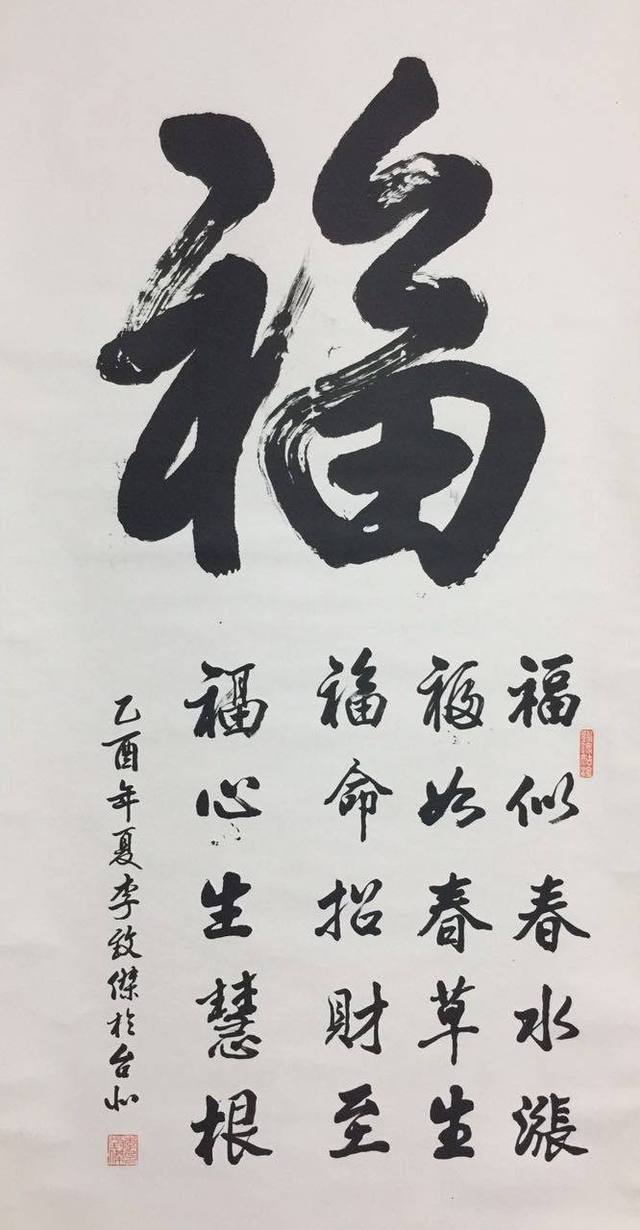 福
福似春水漲
福如春草生
福命招財至
福心生慧根
乙酉年夏李致傑於台北